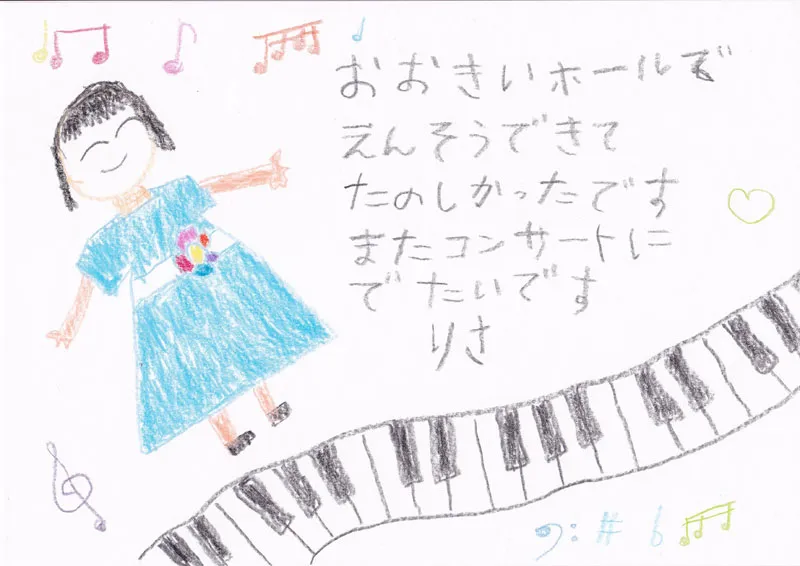 おおきいホールで
えんそうできて
たのしかったです
またコンサートに
でたいです
りさ